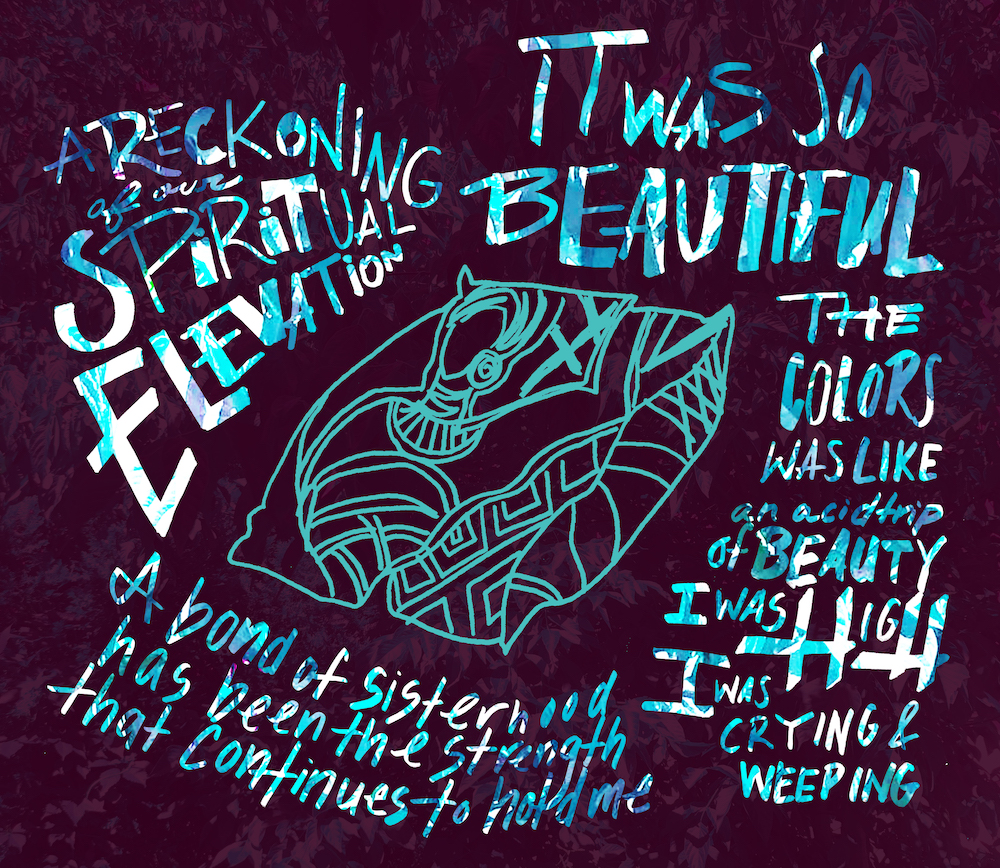 A RECKONING
of our
SPIRITUAL
ELEVATION
IT WAS SO
BEAUTIFUL
THE
COLORS
WAS LIKE
an acid trip
of BEAUTY
I WAS HIGH
I WAS
CRYING &
WEEPING
A bond of sisterhood
has been the strength
that continues to hold me